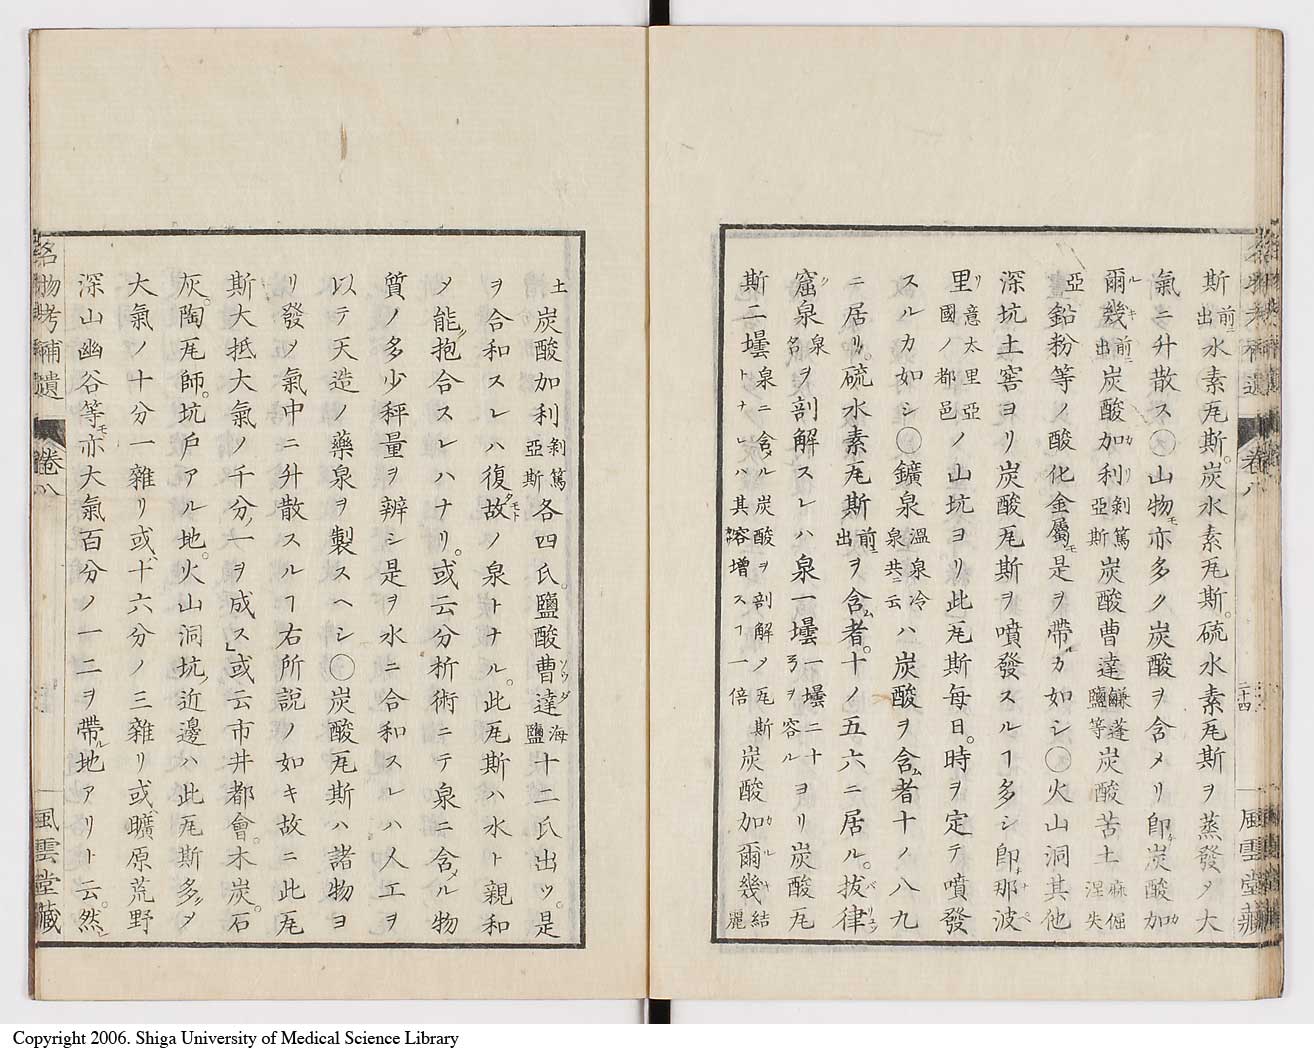 斯前ニ出水素瓦斯。炭水素瓦斯。硫水素瓦斯ヲ蒸發〆大
氣ニ升散ス〇山物モ亦多ク炭酸ヲ含メリ即チ炭酸加カ
爾ル幾キ前ニ出炭酸加カ利リ剥篤亞斯炭酸曹達鹻蓬鹽等炭酸苦土麻倔涅失
亞鉛粉等ノ酸化金屬モ是ヲ帶ルカ如シ〇火山洞其他
深坑土窖ヨリ炭酸瓦斯ヲ噴發スルヿ多シ即チ那ナ波ペ
里リ意太里亞國ノ都邑ノ山坑ヨリ此瓦斯每日。時ヲ定テ噴發
スルカ如シ〇鑛泉溫泉冷泉共ニ云ハ炭酸ヲ含ム者十ノ八九
ニ居リ。硫水素瓦斯前ニ出ヲ含ム者。十ノ五六ニ居ル。拔律
窟泉泉名ヲ剖解スレハ泉一壜一壜二十号ヲ容ルヨリ炭酸瓦
斯二壜トナレハ泉ニ含メル炭酸ヲ剖解〆瓦斯トナレハ其容增スヿ一倍炭酸加カ爾ル幾キ結麗
土炭酸加利剥篤亞斯各四氏。鹽酸曹ソウ達ダ海鹽十二氏出ツ。是
ヲ合和スレハ復タ故モトノ泉トナル。此瓦斯ハ水ト親和
〆能ク抱合スレハナリ。或云分析術ニテ泉ニ含メル物
質ノ多少秤量ヲ辨シ是ヲ水ニ合和スレハ人工ヲ
以テ天造ノ藥泉ヲ製スヘシ〇炭酸瓦斯ハ諸物ヨ
リ發〆氣中ニ升散スルヿ右所說ノ如キ故ニ此瓦
斯大抵大氣ノ千分ノ一ヲ成ス」或云市井都會。木炭。石
灰。陶瓦師。坑戶アル地。火山洞坑ノ近邊ハ此瓦斯多ク〆
大氣ノ十分一雜リ或ハ十六分ノ三雜リ或ハ曠原荒野
深山幽谷等モ亦大氣百分ノ一二ヲ帶ル地アリト云。然レ
名物考補遺
卷八
風雲堂藏
卷八
二十四
風雲堂藏
Copyright 2006. Shiga University of Medical Science Library